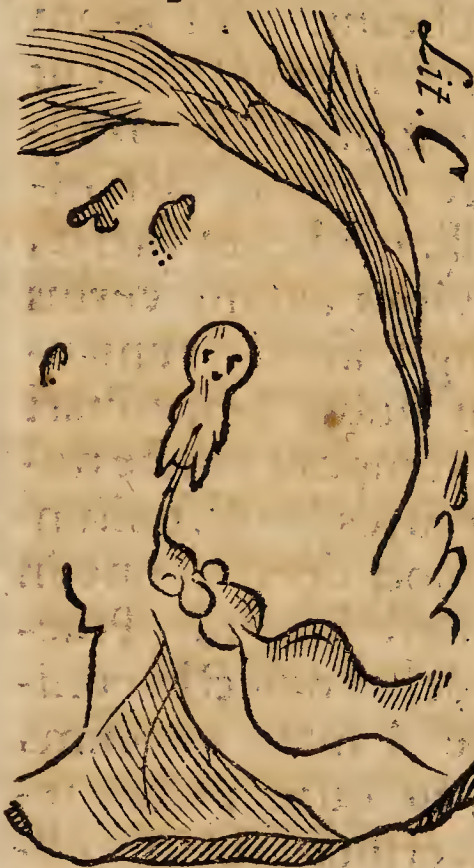 Lit. C